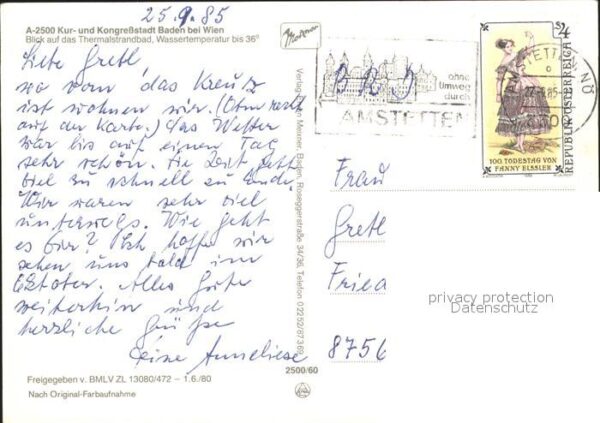 25.9.85
A-2500 Kur- und Kongreßstadt Baden bei Wien
Blick auf das Thermalstrandbad, Wassertemperatur bis 36°
Liebe Gretl
wo vorn das Kreuz
ist wohnen wir. (Oben rechts
auf der Karte.) Das Wetter
war bis auf einen Tag
sehr schön. Die Zeit geht
viel zu schnell zu Ende.
Wir waren sehr viel
unterwegs. Wie geht
es Dir? Ich hoffe wir
sehen uns bald im
Oktober. Alles Gute
weiterhin und
herzliche Grüße
Deine Anneliese
Freigegeben v. BMLV ZL 13080/472 – 1.6./80
Nach Original-Farbaufnahme
Verlag Meixner, Baden, Roseggerstraße 34/36, Telefon 0 22 52/87 3 69
2500/60
BRD
ohne
Umweg
durch
AMSTETTEN
AMSTETTEN NÖ
S 4
REPUBLIK ÖSTERREICH
100. TODESTAG VON
FANNY ELSSLER
Frau
Gretl
Fried
8756
privacy protection
Datenschutz